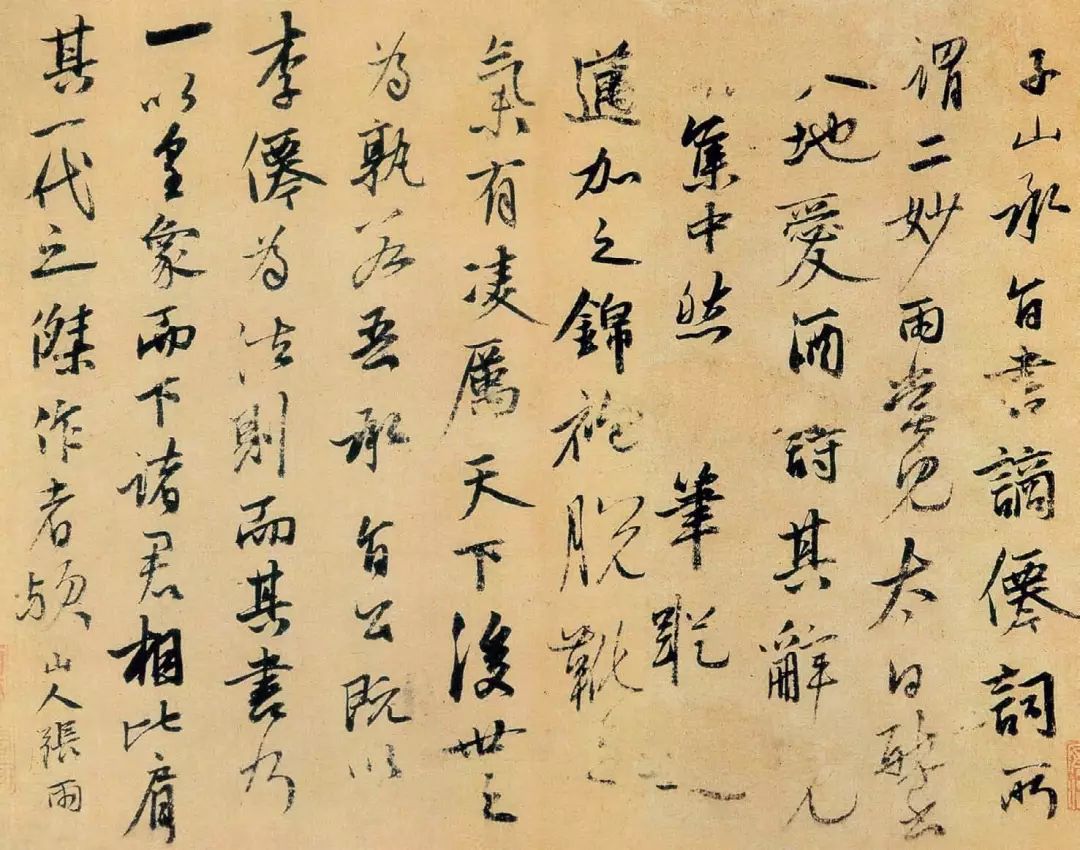 子山承旨書謫僊詞所
謂二妙雨嘗見太白醉書
地愛酒詩其辭見
集中然筆蹤
邁加之錦袍脫靴
氣有凌厲天下後世之
為孰若吾承旨公既以
李僊為法則而其書乃
一以皇象而下諸君相比肩
其一代之傑作者歟 山人張雨